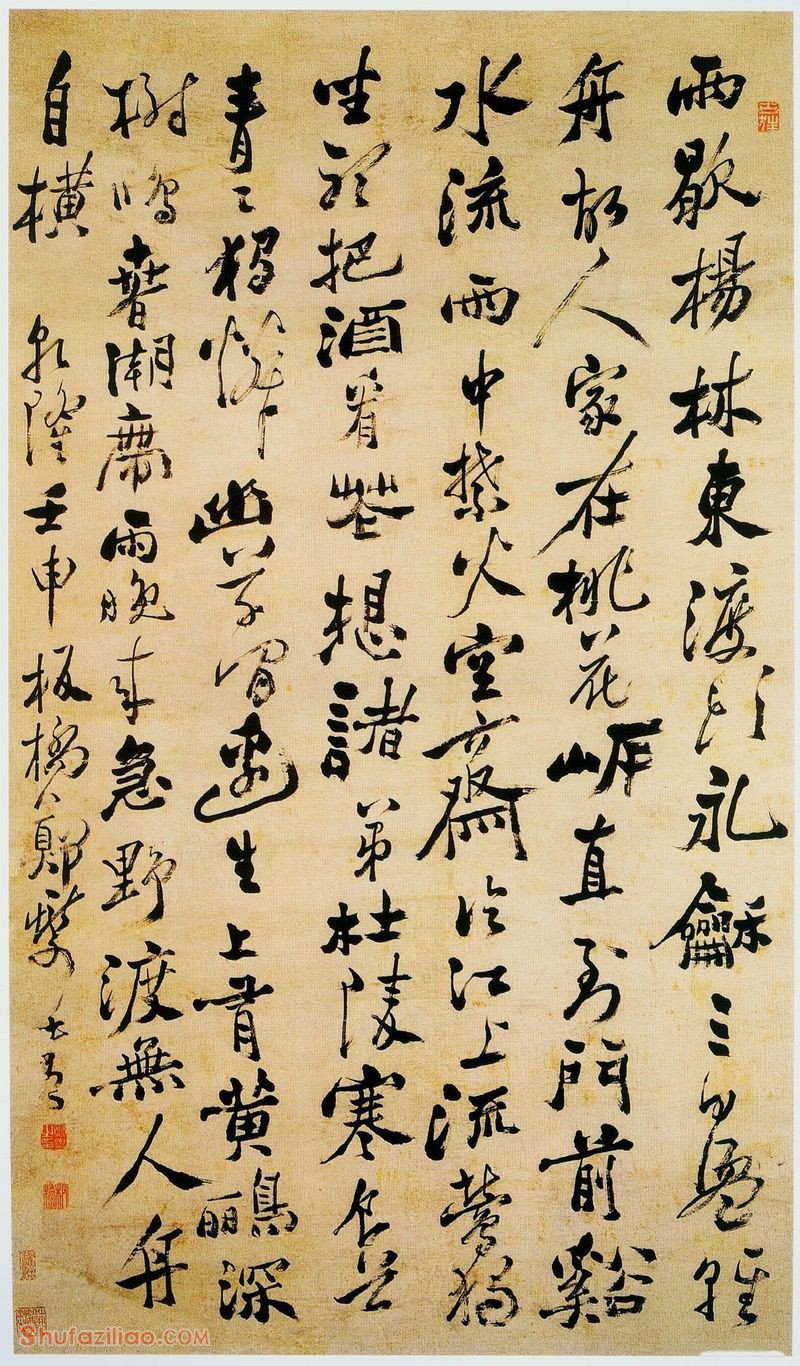 雨歇楊林東渡頭永龢三日盪輕
舟故人家在桃花岸直到門前谿
水流雨中禁火空齋冷江上流鶯獨
坐聽把酒看花想諸弟杜陵寒食草
青々獨憐幽草澗邊生上有黃鸝深
樹鳴春潮帶雨晚來急野渡無人舟
自橫 乾隆壬申板橋鄭燮
Shufaziliao.COM